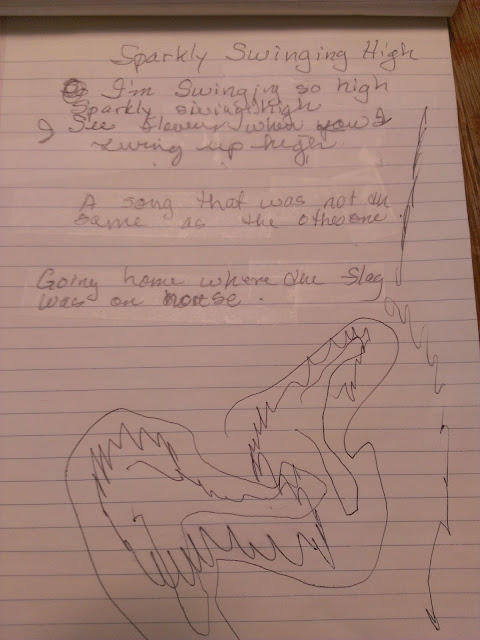 Sparkly Swinging High
I'm Swinging so high
Sparkly swing high
I See flower when you I
swing up high
A song that was not the
same as the other one
Going home where the flag
was on house.